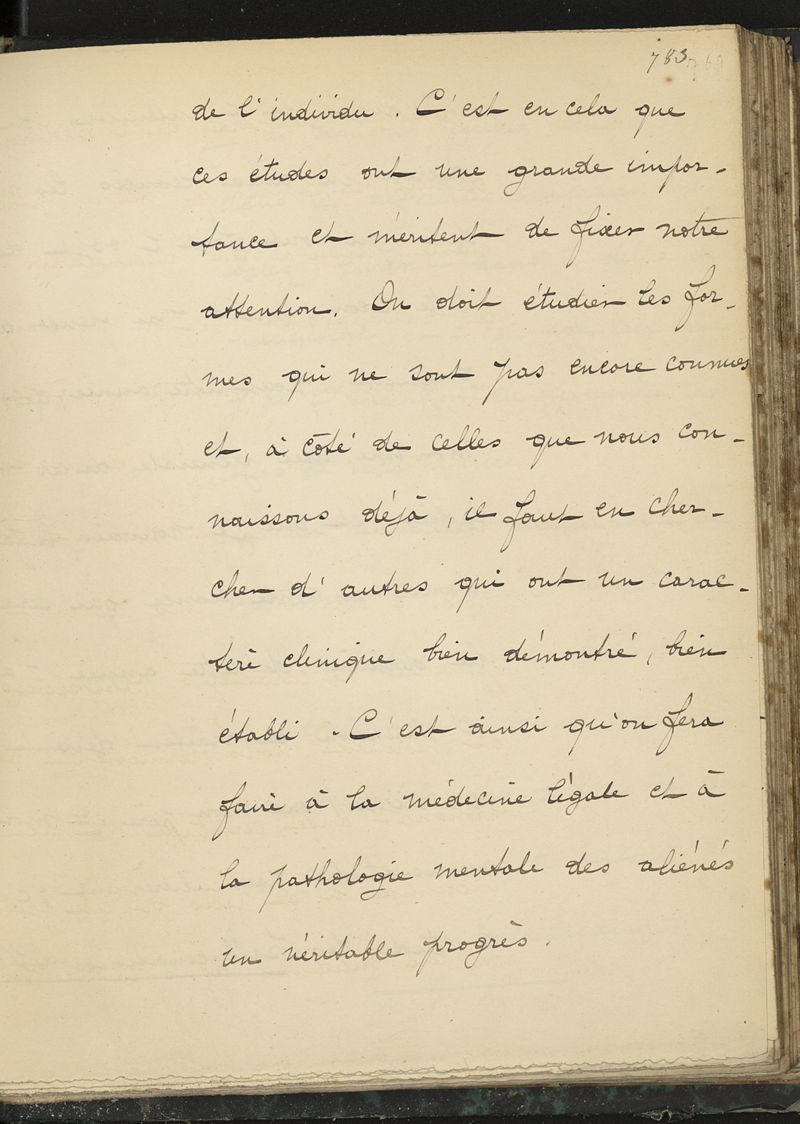 783
de l'individu. C'est en cela que
ces études ont une grande impor-
tance et méritent de fixer notre
attention. On doit étudier les for-
mes qui ne sont pas encore connues
et, à côté de celles que nous con-
naissons déjà, il faut en cher-
cher d'autres qui ont un carac-
tère clinique bien démontré, bien
établi. C'est ainsi qu'on fera
faire à la médecine légale et à
la pathologie mentale des aliénés
un véritable progrès.